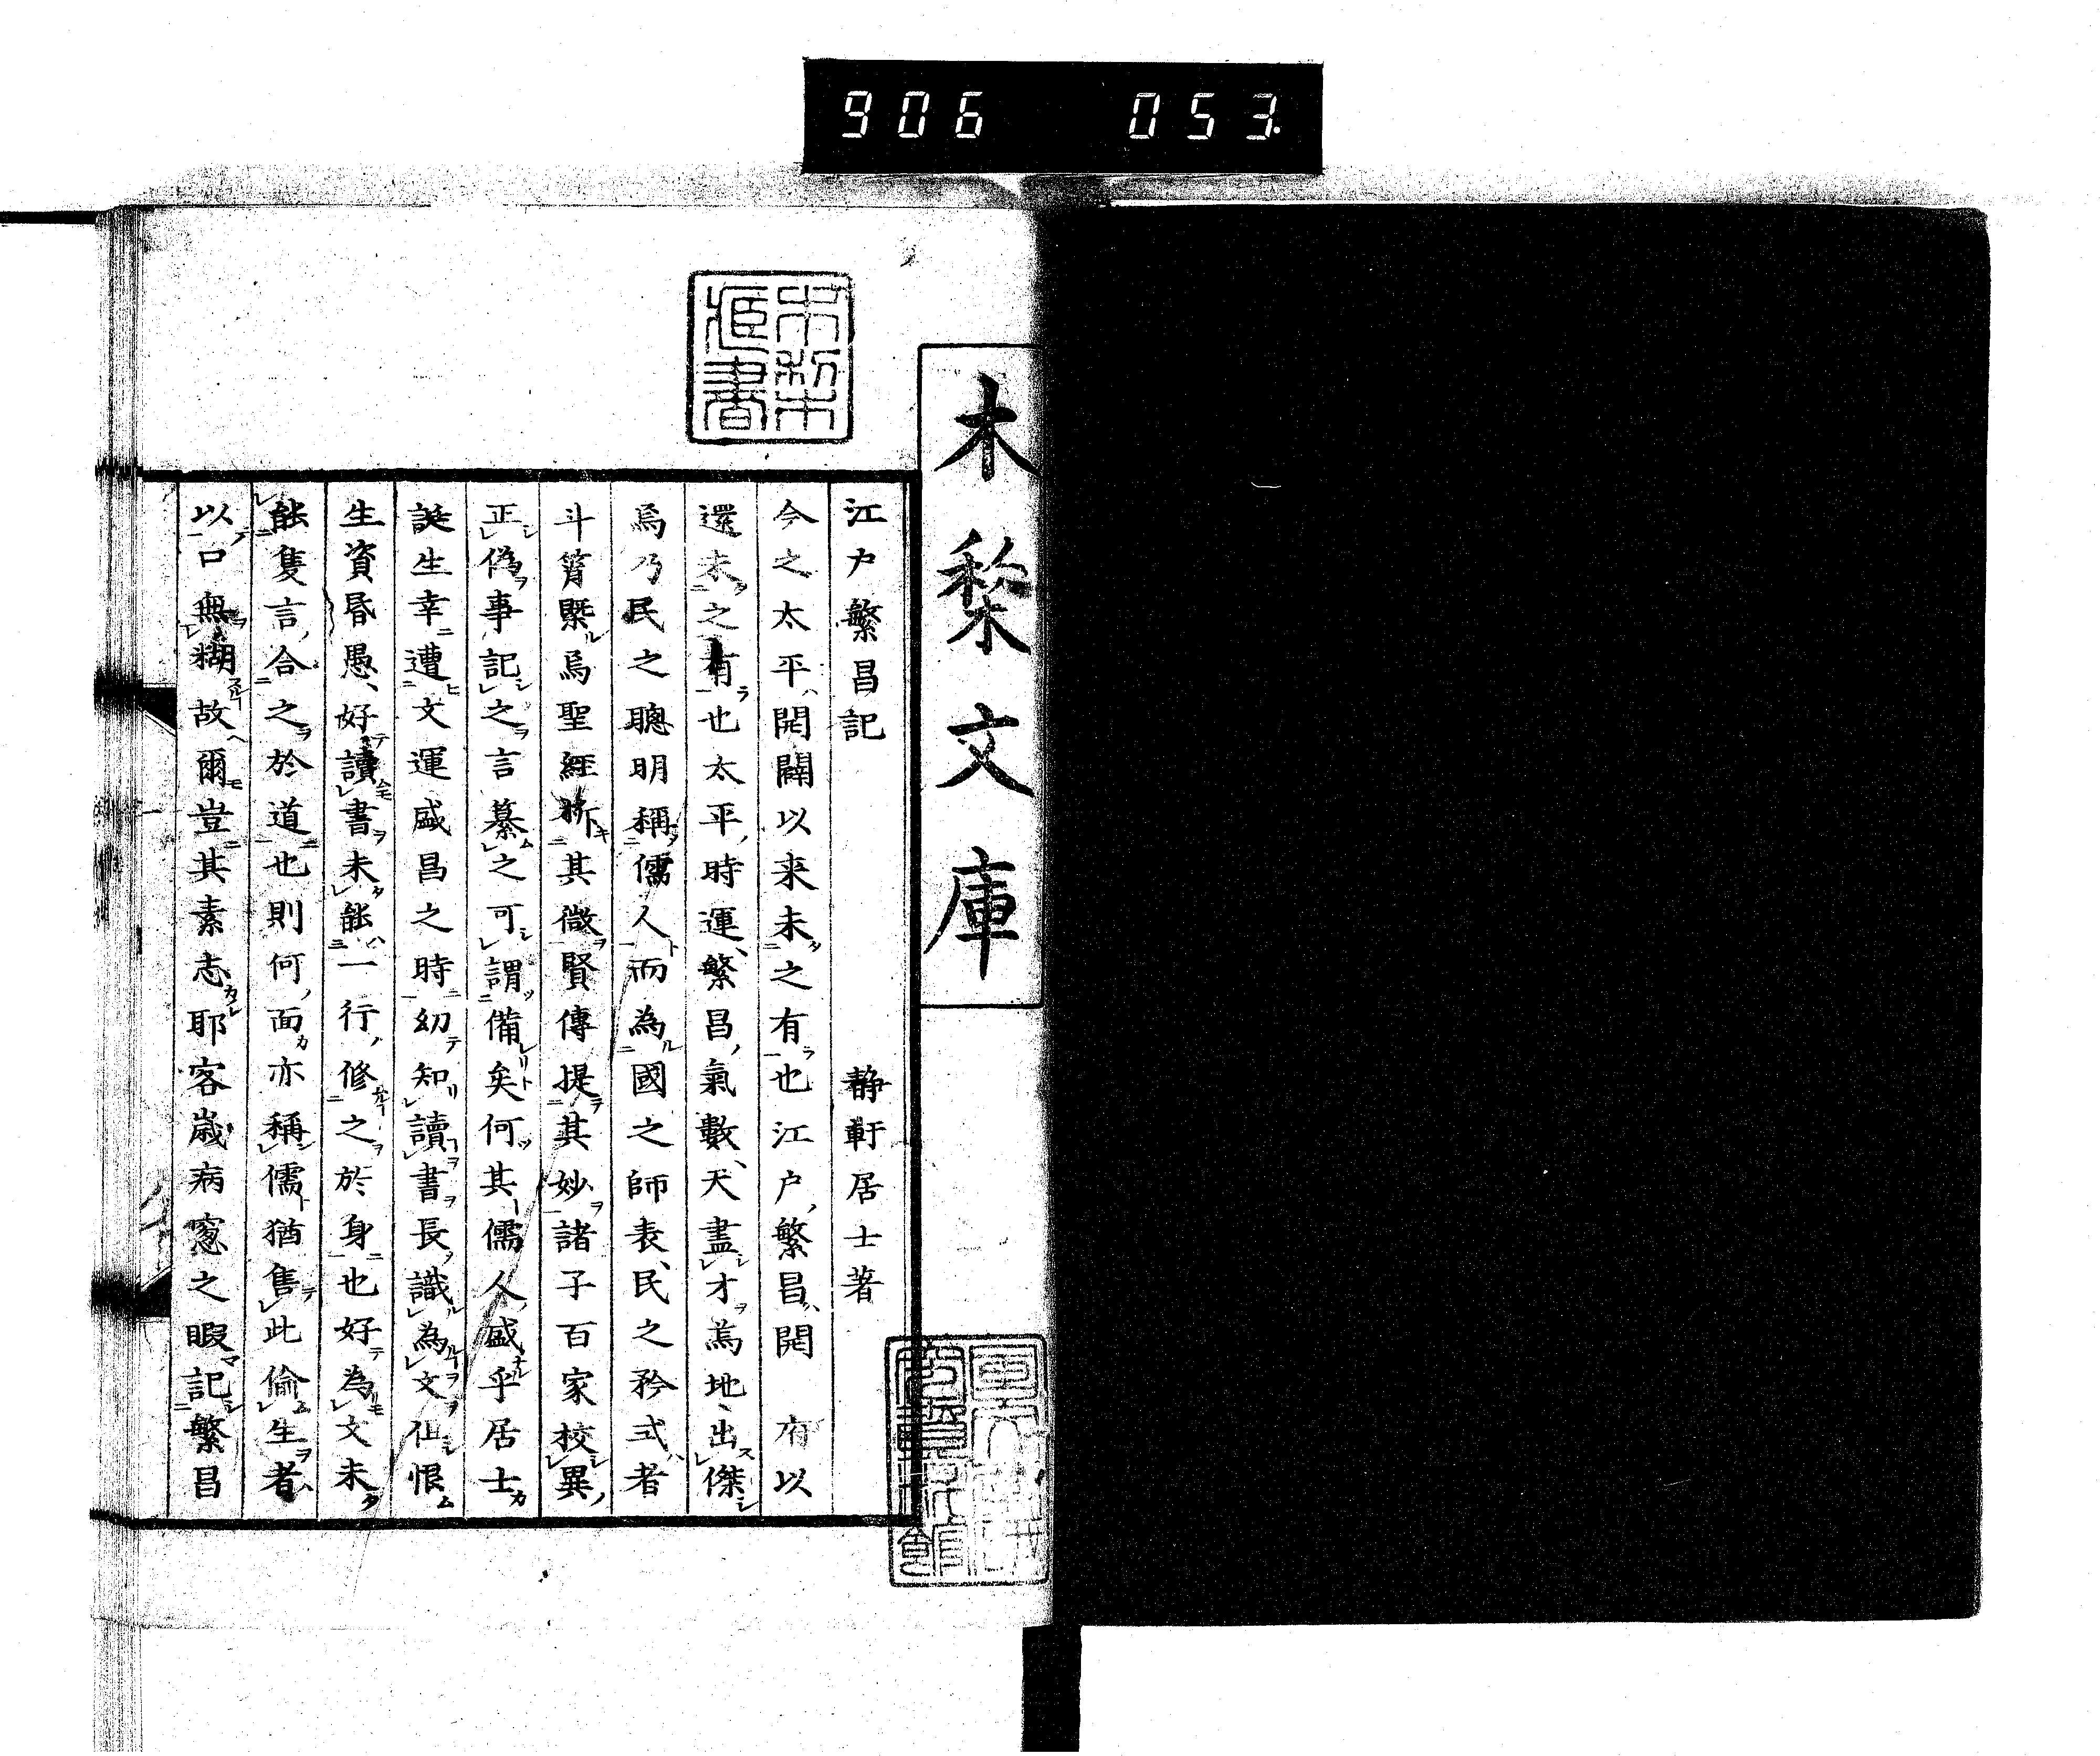 906 053
木棃文庫
江戸繁昌記 静軒居士著
今之太平開闢以来未之有也江戸繁昌開 府以
還未之有也太平時運繁昌氣數天盡才焉地出傑
焉乃民之聰明稱儒人而為國之師表民之矜式者
斗筲槩焉聖經析其微賢傳提其妙諸子百家校異
正偽事記之言纂之可謂備矣何其儒人盛乎居士
誕生幸遭文運盛昌之時幼知讀書長識為文但恨
生資昏愚好讀書未能一行修之於身也好為文未
能隻言合之於道也則何面亦稱儒猶售此偷生者
以口無糊故爾豈其素志耶客歳病窓之暇記繁昌